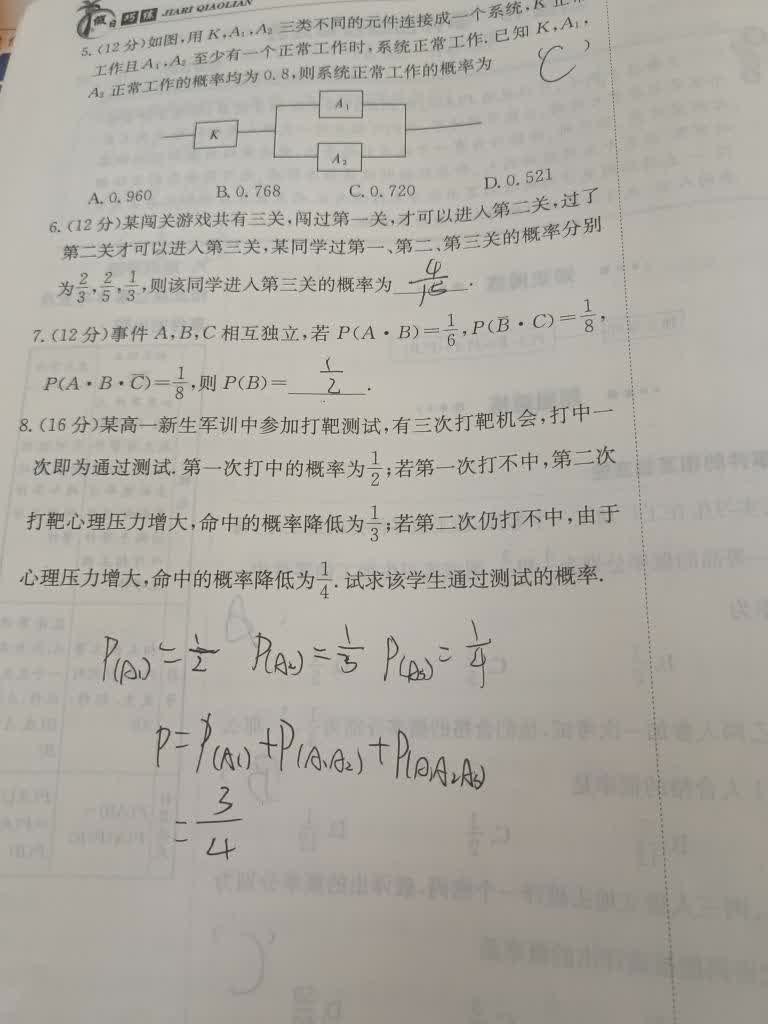 假日巧练 JIARI QIAOLIAN
5.(12分)如图,用K,A₁,A₂三类不同的元件连接成一个系统,K正常
工作且A₁,A₂至少有一个正常工作时,系统正常工作.已知K,A₁,
A₂正常工作的概率均为0.8,则系统正常工作的概率为 C )
K A₁ A₂
A. 0.960 B. 0.768 C. 0.720 D. 0.521
6.(12分)某闯关游戏共有三关,闯过第一关,才可以进入第二关,过了
第二关才可以进入第三关,某同学过第一、第二、第三关的概率分别
为2/3,2/5,1/3,则该同学进入第三关的概率为 4/15 .
7.(12分)事件A,B,C相互独立,若P(A·B)=1/6,P(B̄·C)=1/8,
P(A·B·C̄)=1/8,则P(B)= 1/2 .
8.(16分)某高一新生军训中参加打靶测试,有三次打靶机会,打中一
次即为通过测试.第一次打中的概率为1/2;若第一次打不中,第二次
打靶心理压力增大,命中的概率降低为1/3;若第二次仍打不中,由于
心理压力增大,命中的概率降低为1/4.试求该学生通过测试的概率.
P(A₁)=1/2 P(A₂)=1/3 P(A₃)=1/4
P=P(A₁)+P(A₁A₂)+P(A₁A₂A₃)
=3/4